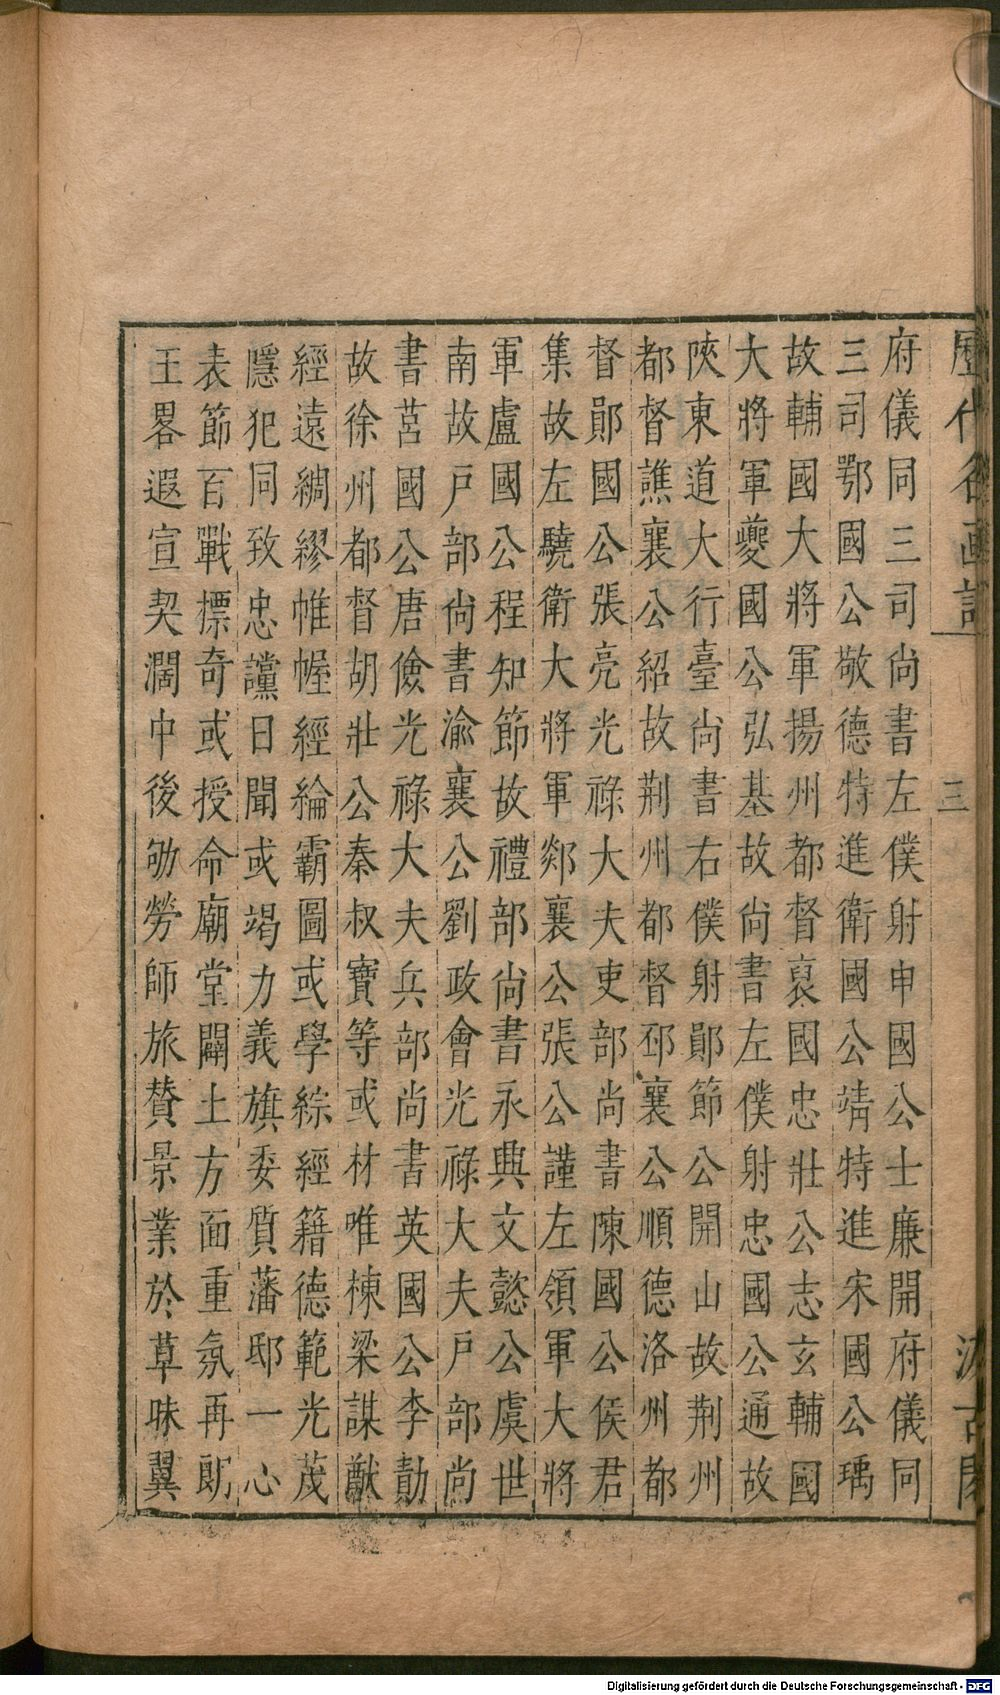 歷代名画記
三
汲古閣
府儀同三司尚書左僕射申國公士廉開府儀同
三司鄂國公敬德特進衛國公靖特進宋國公瑀
故輔國大將軍揚州都督裒國忠壯公志玄輔國
大將軍夔國公弘基故尚書左僕射忠國公通故
陝東道大行臺尚書右僕射鄖節公開山故荆州
都督譙襄公紹故荆州都督邳襄公順德洛州都
督鄖國公張亮光祿大夫吏部尚書陳國公侯君
集故左驍衛大將軍郯襄公張公謹左領軍大將
軍盧國公程知節故禮部尚書永典文懿公虞世
南故戸部尚書渝襄公劉政會光祿大夫戸部尚
書莒國公唐儉光祿大夫兵部尚書英國公李勣
故徐州都督胡壯公秦叔寶等或材唯棟梁謀猷
經遠綢繆帷幄經綸霸圖或學綜經籍德範光茂
隱犯同致忠讜日聞或竭力義旗委質藩邸一心
表節百戰摽奇或授命廟堂闢土方面重氛再朗
王畧遐宣契濶中後劬勞師旅賛景業於草昧翼
Digitalisierung gefördert durch die Deutsche Forschungsgemeinschaft - DFG